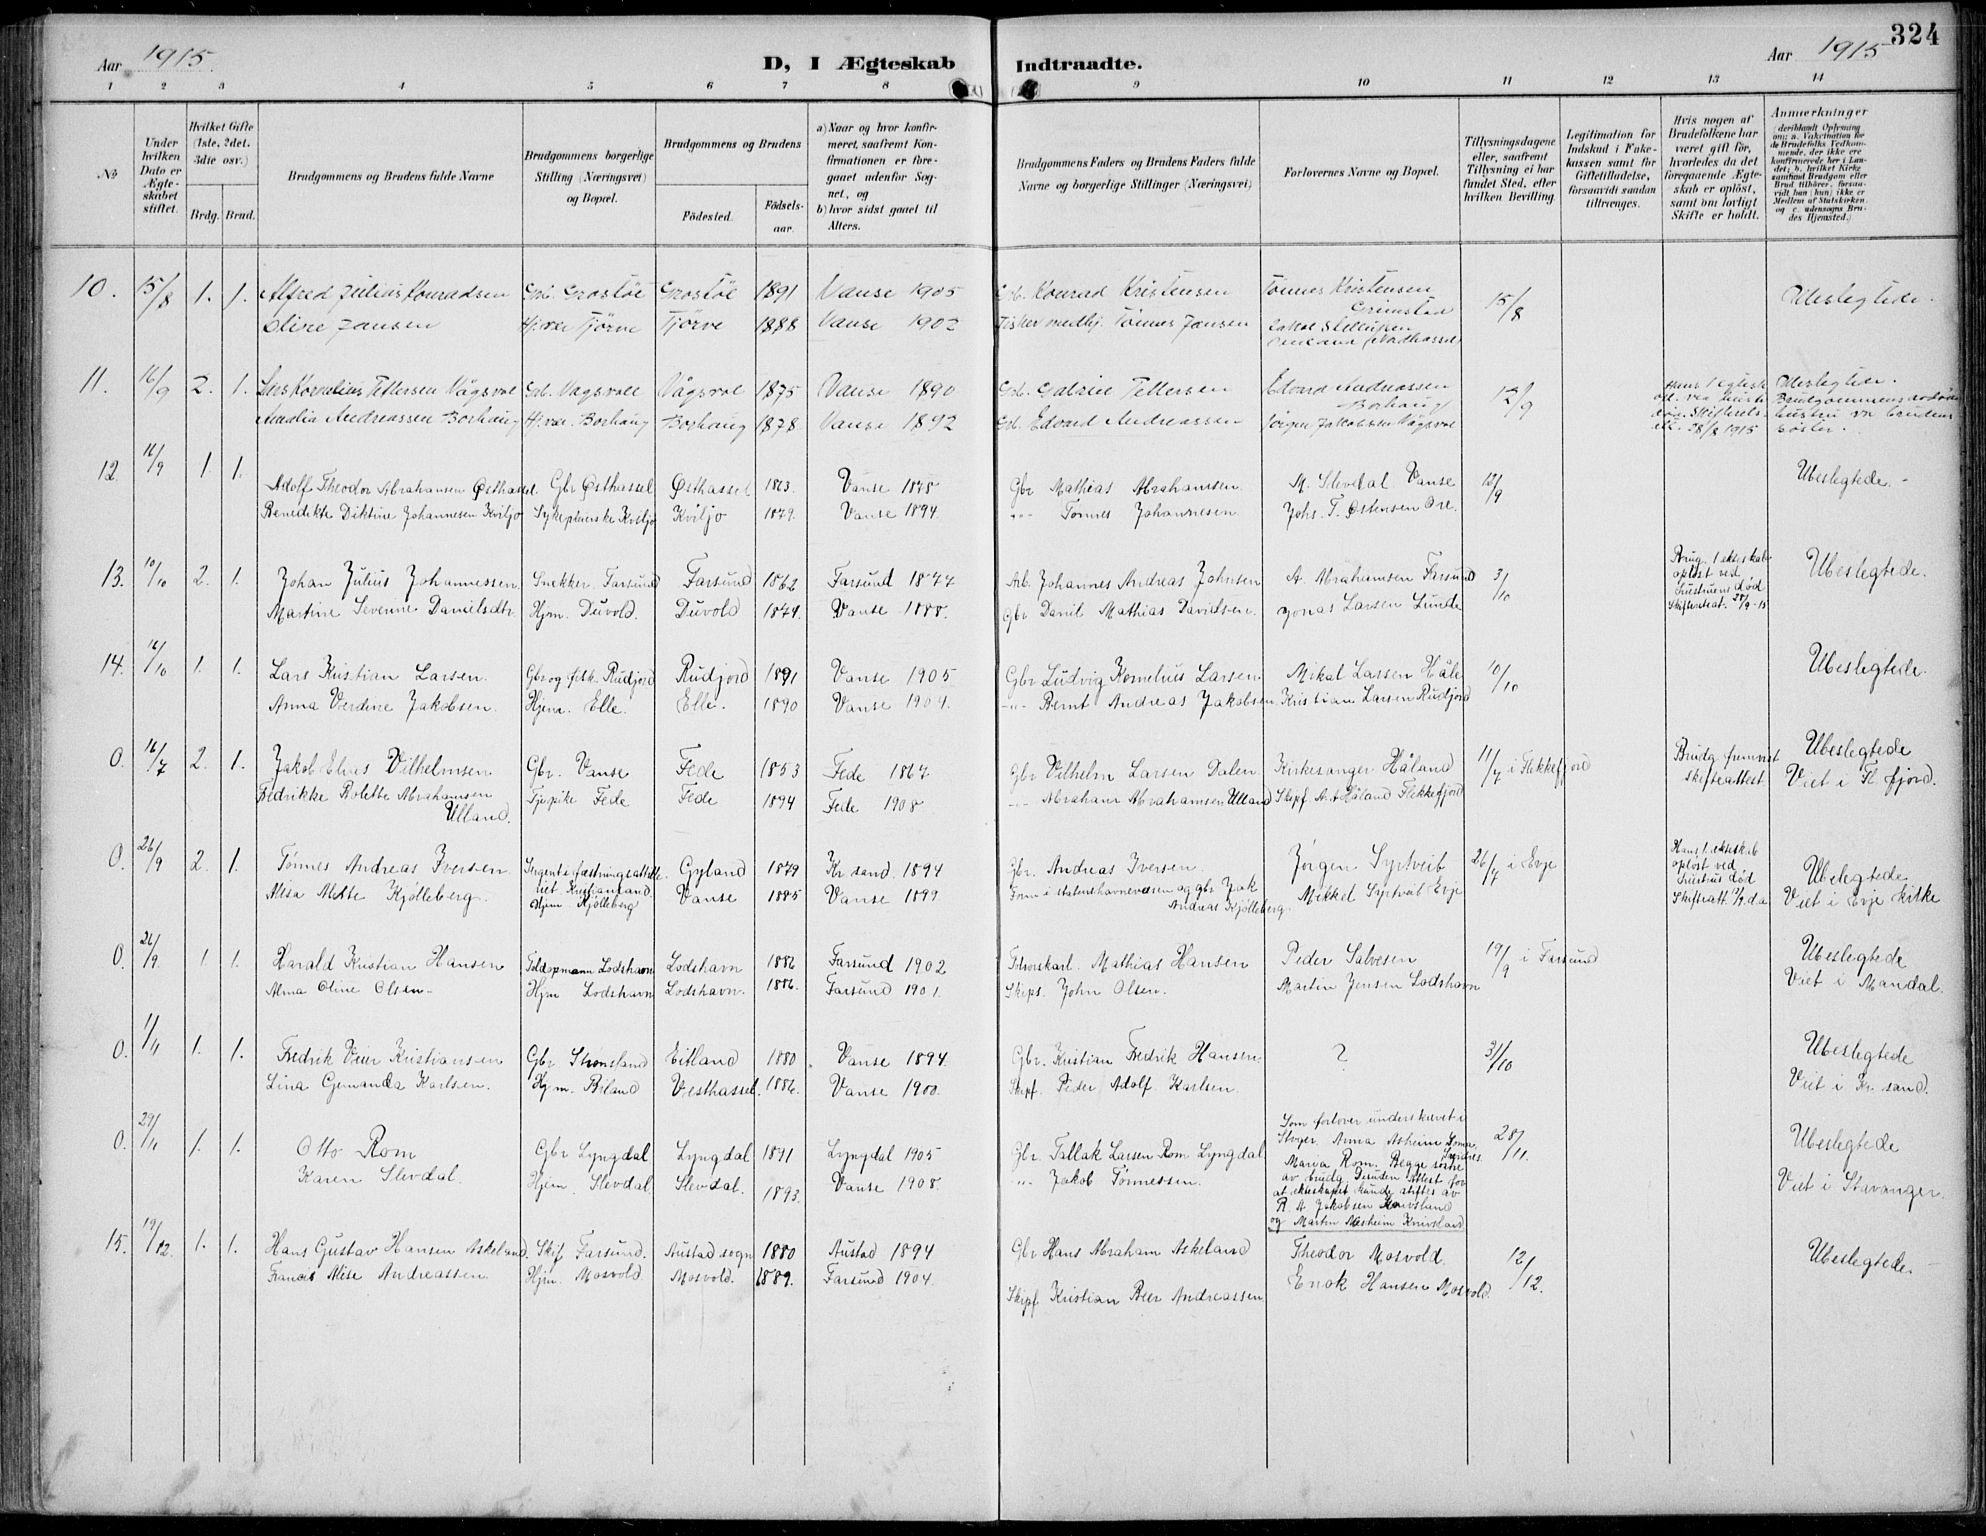 324
Aar 1915.
D, I Ægteskab Indtraadte.
Aar 1915
1 2 3 4 5 6 7 8 9 10 11 12 13 14
No.
Under hvilken Dato er Ægteskabet stiftet.
Hvilket Gifte (1ste, 2det. 3die osv.)
Brdg. Brud.
Brudgommens og Brudens fulde Navne
Brudgommens borgerlige Stilling (Næringsvei) og Bopæl.
Brudgommens og Brudens
Fødested.
Fødselsaar.
a) Naar og hvor konfirmeret, saafremt Konfirmationen er foregaaet udenfor Sognet, og
b) hvor sidst gaaet til Alters.
Brudgommens Faders og Brudens Faders fulde Navne og borgerlige Stillinger (Næringsvei)
Forlovernes Navne og Bopæl.
Tillysningsdagene eller, saafremt Tillysning ei har fundet Sted, efter hvilken Bevilling.
Legitimation for Indskud i Enkekassen samt for Giftetilladelse, forsaavidt saadan tiltrænges.
Hvis nogen af Brudefolkene har været gift før, hvorledes da det foregaaende Ægteskab er opløst, samt om lovligt Skifte er holdt.
Anmærkninger (deriblandt Oplysning om: a. Vakcination for de Brudefolks Vedkommende, der ikke ere konfirmerede her i Landet; b. hvilket Kirkesamfund Brudgom eller Brud tilhører, forsaavidt han (hun) ikke er Medlem af Statskirken, og c. udensogns Brudes Hjemsted.)
10. 15/8 1. 1. Alfred Julius Konradsen Gbr. Grostöl Grostöl 1891 Vanse 1905 Gbr. Konrad Kristensen Tönnes Kristensen Grimstad 15/8 Ubeslegtede.
Oline Jansen Hj.vær Tjörve Tjörve 1888 Vanse 1902 Tönnes Jansen
11. 16/9 2. 1. Lars Kornelius Tellersen Vågsvol Gbr. Vågsvoll Vågsvol 1875 Vanse 1890 Gbr. Gabriel Tellersen Edvard Andreassen Borhaug 12/9 Ubeslegtede. Brudgommens
Amalia Andreassen Borhaug Hj.vær. Borhaug Borhaug 1878 Vanse 1892 Gbr. Edvard Andreassen Jörgen Jakobsen Vågsvol 28/8 1915 hustru var brudens söster.
12. 16/9 1 1. Adolf Theodor Abrahamsen Østhassel. Gbr Østhassel Østhassel 1863. Vanse 1878 Gbr Mathias Abrahamsen. M. Slevdal Vanse 12/9 Ubeslegtede. -
Benedikte Diktine Johannesen Kviljo Sykepleierske Kviljo Kviljo 1879. Vanse 1894. -"- Tønnes Johannesen. Johs. T. Østensen Ore.
13. 10/10 2. 1. Johan Julius Johannessen Snekker Farsund Farsund 1862 Farsund 1877 Arb. Johannes Andreas Johnsen A. Abrahamsen Farsund 3/10 Brug. 1 ekteskab opløst ved hustruens død Skifteattest. 28/9-15 Ubeslegtede.
Martine Severine Danielsdtr. Hjm. Duvold. Duvold 1874. Vanse 1888. Gbr Daniel Mathias Davidsen. Jonas Larsen Lunde
14. 14/10 1. 1. Lars Kristian Larsen. Gbr og fisk. Rudjord Rudjord 1891 Vanse 1905 Gbr Ludvig Kornelius Larsen Mikal Larsen Håle 10/10 Ubeslegtede.
Anna Verdine Jakobsen. Hjem. Elle. Elle. 1890 Vanse 1904. -"- Bernt Andreas Jakobsen Kristian Larsen Rudjord
0. 16/7 2. 1. Jakob Elias Vilhelmsen Gbr. Vanse Fede 1853 Fede 1867 Gbr Vilhelm Larsen Dalen. Kirkesanger Håland 11/7 i Flekkefjord Brudg fremvist skifteattest Ubeslegtede
Fredrikke Rolette Abrahamsen Ulland. Tjepike Fede Fede 1894 Fede 1908 -"- Abraham Abrahamsen Ulland Skipf A. A Håland Flekkefjord Viet i Fl. fjord.
0. 26/9 2. 1. Tønnes Andreas Iversen Gyland 1879 Kr sand. 1894 Gbr. Andreas Iversen. Jørgen Syrtveit 26/7 i Evje Hans 1. ekteskab opløst ved hustrus død Skifteatt. Ubeslegtede
Alisa Alette Kjølleberg. Hjem Kjølleberg Vanse 1885 Vanse 1899. Form i statens havnevesen og gbr Jak Andreas Kjølleberg. Mikkel Syrtveit Evje Viet i Evje kirke
0. 26/9. 1. 1. Harald Kristian Hansen Toldopmann Lodshavn Lodshavn 1886 Farsund 1902 Mathias Hansen Peder Salvesen 19/9 i Farsund Ubeslegtede
Alma Oline Olsen. Hjm Lodshavn Lodshavn. 1886. Farsund 1901. Skips. John Olsen. Martin Jensen Lodshavn Viet i Mandal.
0. 11/11 1. 1. Fredrik Veier Kristiansen Gbr. Strønsland Eitland 1880 Vanse 1894. Gbr. Kristian Fredrik Hansen. ? 31/10 Ubeslegtede
Lina Gemanda Karlsen. Hjm. Biland Vesthassel. 1886. Vanse 1900. Skipf. Peder Adolf Karlsen. Viet i Kr. sand.
0. 29/11 1. 1. Otto Rom Gbr Lyngdal Lyngdal 1891 Lyngdal 1905 Gbr. Tallak Larsen Rom Lyngdal Som forlover underskrevet i Stvger. Anna Aasheim 28/11. Ubeslegtede
Karen Slevdal. Hjem Slevdal Slevdal. 1893. Vanse 1908. -"- Jakob Tönnessen. Maria Rom. Begge av brudg Attest for at ekteskapet kunde stiftes av R. A Jakobsen og Martin Aasheim Viet i Stavanger.
15. 19/12. 1. 1. Hans Gustav Hansen Askeland. Skif Farsund. Austad sogn 1880 Austad 1894 Gbr Hans Abraham Askeland Theodor Mosvold. 12/12. Ubeslegtede.
Francis Alise Andreassen. Hjm. Mosvold Mosvold. 1889. Farsund 1904. Skipf Kristian Beer Andreassen Enok Hansen Mosvold.